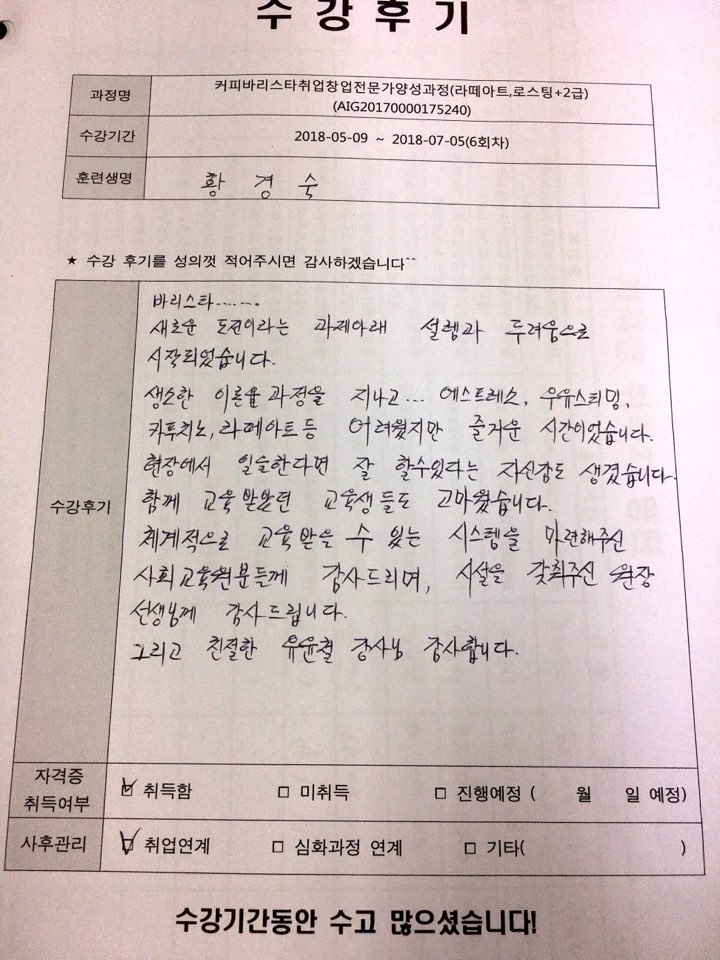 수강후기
과정명 커피바리스타취업창업전문가양성과정(라떼아트,로스팅+2급)
(AIG20170000175240)
수강기간 2018-05-09 ~ 2018-07-05(6회차)
훈련생명 황 경 숙
★ 수강 후기를 성의껏 적어주시면 감사하겠습니다^^
바리스타......
새로운 도전이라는 과제아래 설렘과 두려움으로
시작되었습니다.
생소한 이론을 과정을 지나고... 에스트레소, 우유스티밍,
카푸치노, 라떼아트등 어려웠지만 즐거운 시간이었습니다.
현장에서 일슬한다면 잘 할수있다는 자신감도 생겼습니다.
수강후기
함께 교육받았던 교육생들도 고마웠습니다.
체계적으로 교육받을 수 있는 시스템을 마련해주신
사회교육원분들께 감사드리며, 시설을 갖춰주신 원장
선생님께 감사드립니다.
그리고 친절한 유윤철 강사님 감사합니다.
자격증
취득여부 ☑ 취득함 □ 미취득 □ 진행예정 ( 월 일 예정)
사후관리 ☑ 취업연계 □ 심화과정 연계 □ 기타( )
수강기간동안 수고 많으셨습니다!